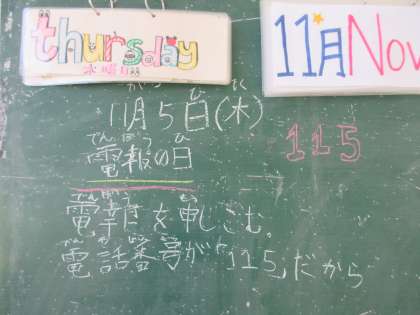 thursday
木曜日
11月Nov
11月5日(木)
115
でんぽう ひ
電報の日
電報を申しこむ。
電話番号が「115」だから